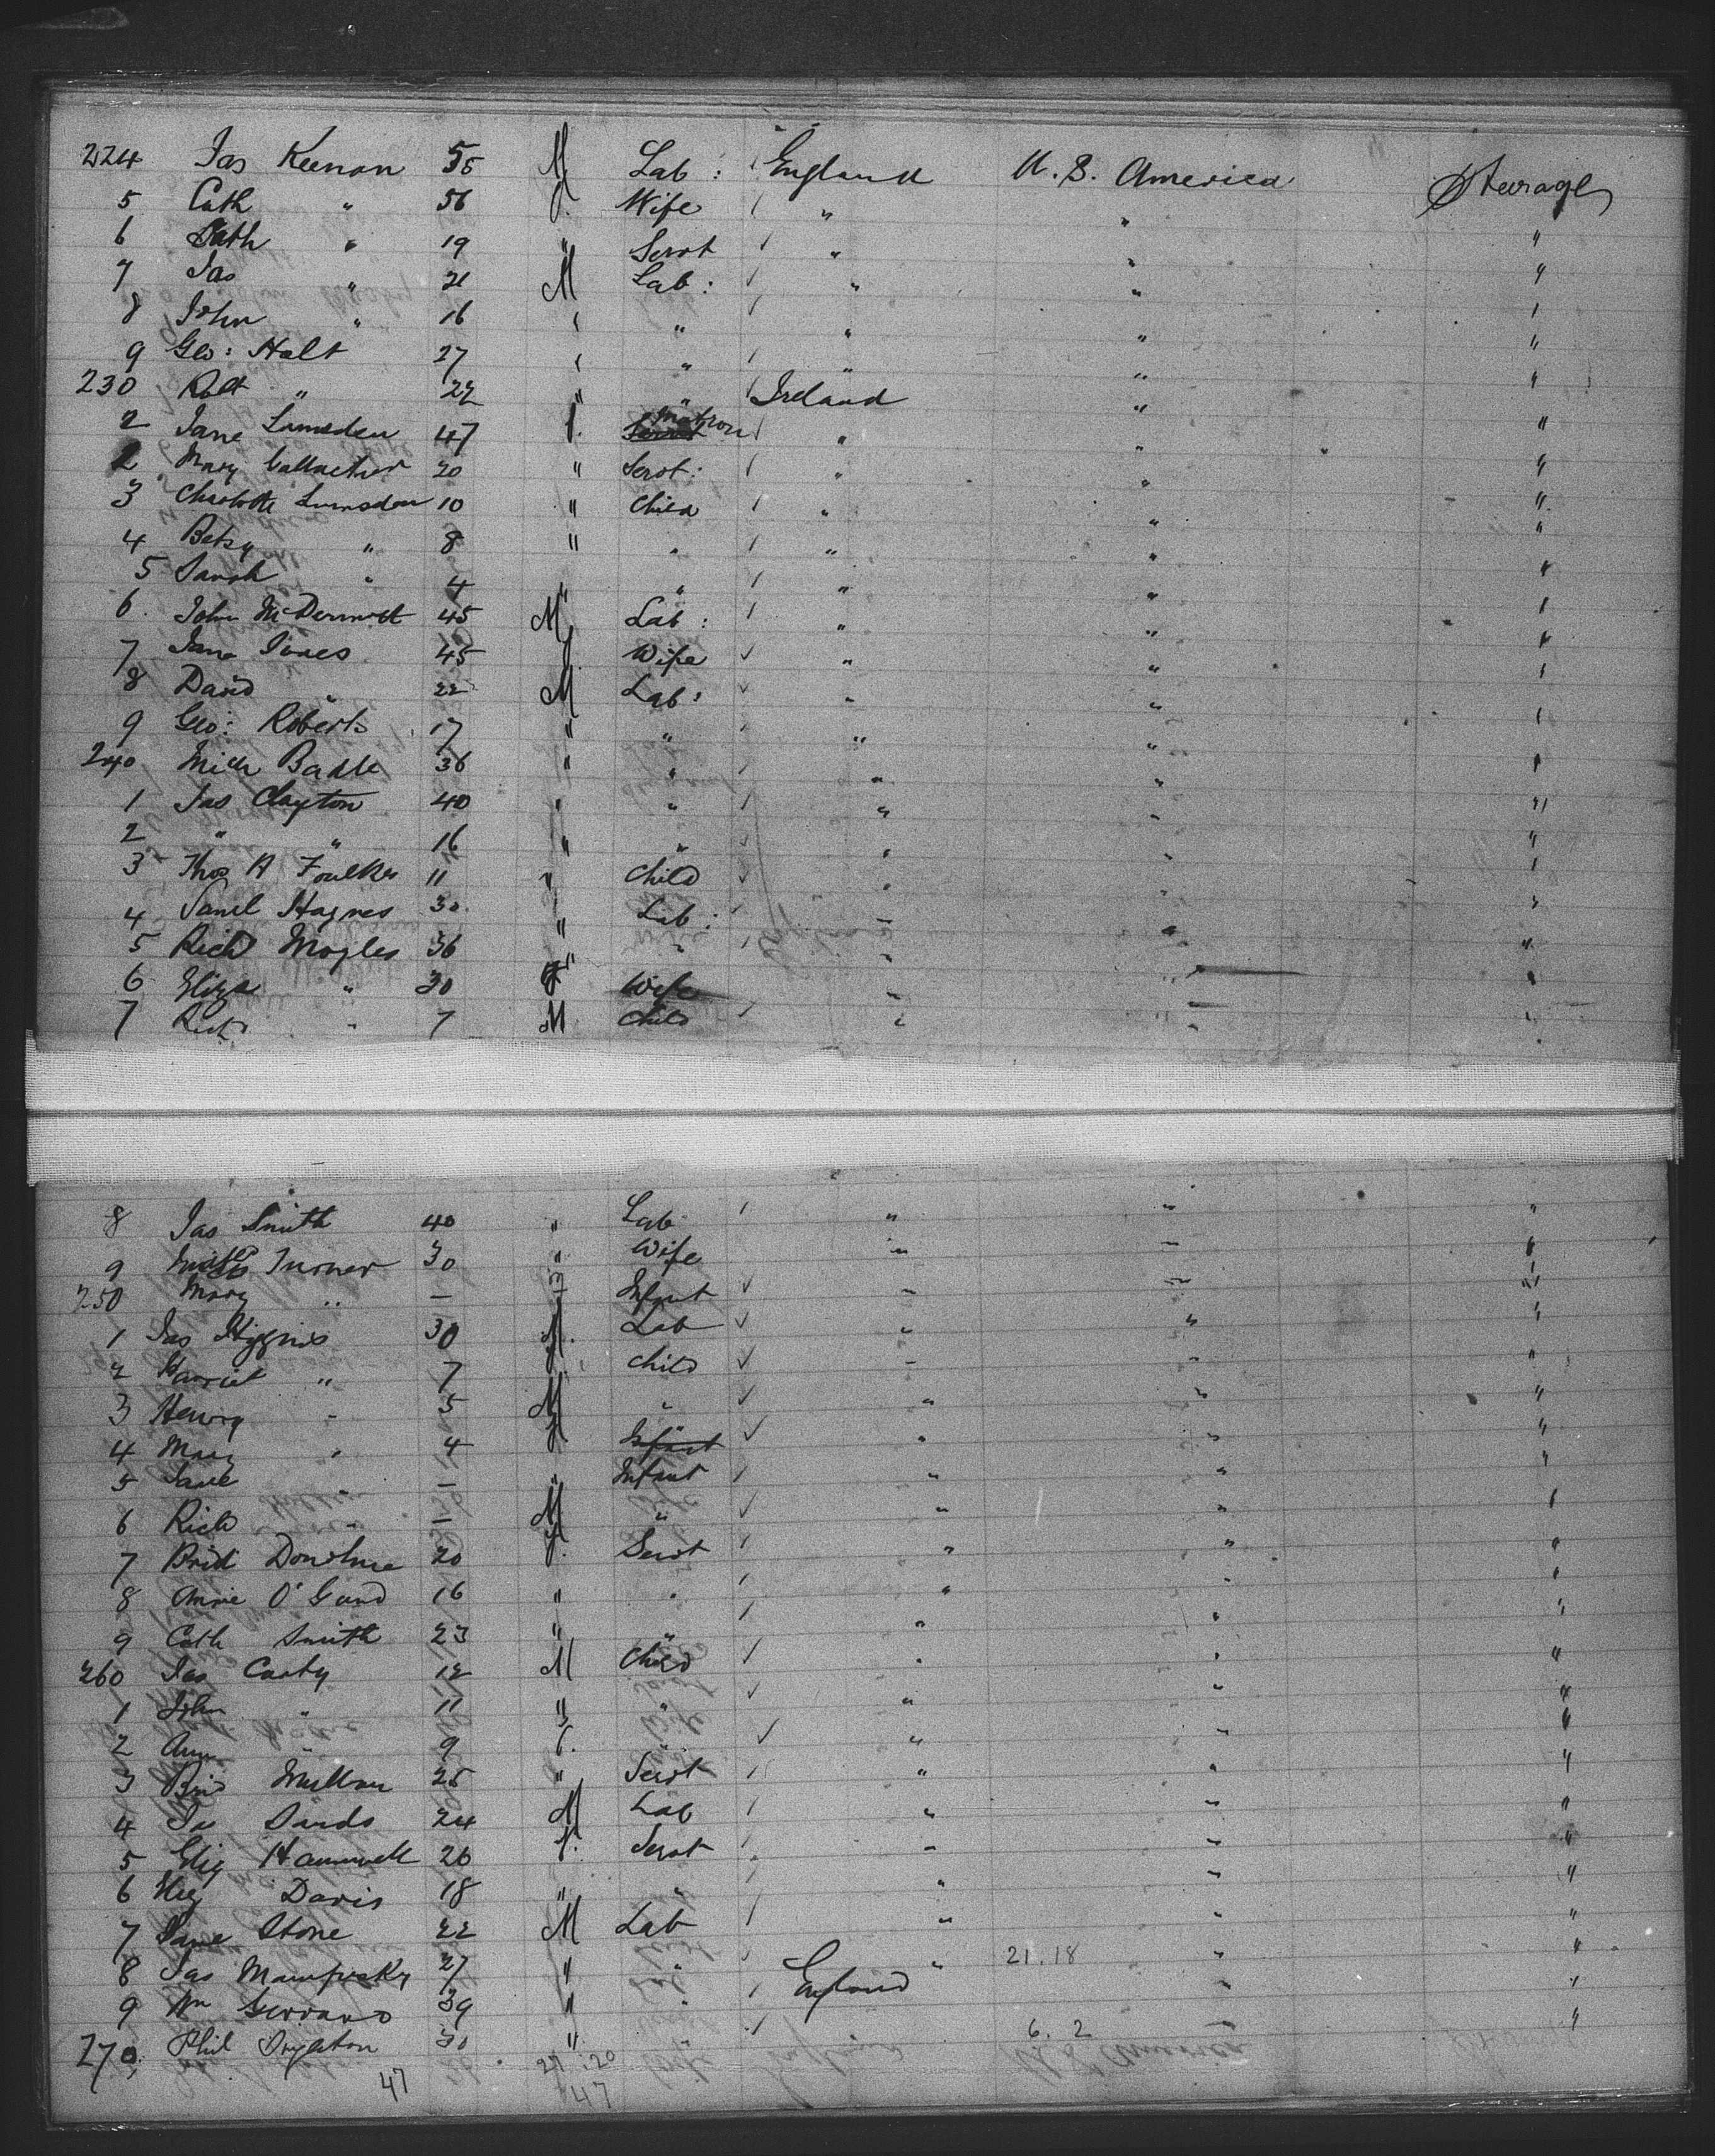 224 Jas Keenan 55 M Lab: England U.S. America Steerage
5 Cath " 56 f. Wife " " "
6 Cath " 19 " Servt " " "
7 Jas " 21 M Lab: " " "
8 John " 16 " " " " "
9 Geo: Halt 27 " " " " "
230 Robt " 22 " " Ireland " "
2 Jane Lumsden 47 f. Servt Matron " " "
2 Mary Gallacher 20 " Servt: " " "
3 Charlotte Lumsden 10 " Child " " "
4 Betsy " 8 " " " " "
5 Sarah " 4 " " " " "
6. John McDermott 45 M Lab: " " "
7 Jane Jones 45 f Wife " " "
8 David " 22 M Lab: " " "
9 Geo: Roberts 17 " " " " "
240 Mich Badle 36 " " " " "
1 Jas Clayton 40 " " " " "
2 " " 16 " " " " "
3 Thos A Foulkes 11 " Child " " "
4 Saml Haynes 30 " Lab: " " "
5 Richd Moyles 36 " " " " "
6 Eliza " 30 f Wife " " "
7 Richd " 7 M Child " " "
8 Jas Smith 40 " Lab " " "
9 Turner 30 " Wife " " "
250 Mary " — " Infant " " "
1 Jas Higgins 30 M. Lab " " "
2 Harriet " 7 f Child " " "
3 Henry " 5 M " " " "
4 Mary " 4 f Infant " " "
5 Jane " — " Infant " " "
6 Richd " — M " " " "
7 Brid Donohue 20 f. Servt " " "
8 Annie O' 16 " " " " "
9 Cath Smith 23 " " " " "
260 Jas Carty 12 M Child " " "
1 John " 11 " " " " "
2 Ann " 9 f. " " " "
3 Brid Mullan 25 " Servt " " "
4 Jas 24 M Lab " " "
5 Eliz Hammell 26 f. Servt " " "
6 Eliz Davis 18 " " " " "
7 Stone 22 M Lab " " "
8 Jas 27 " " " 21.18 " "
9 Wm 39 " " England " "
270 Phil 30 " 6. 2 "
47 27 20
47